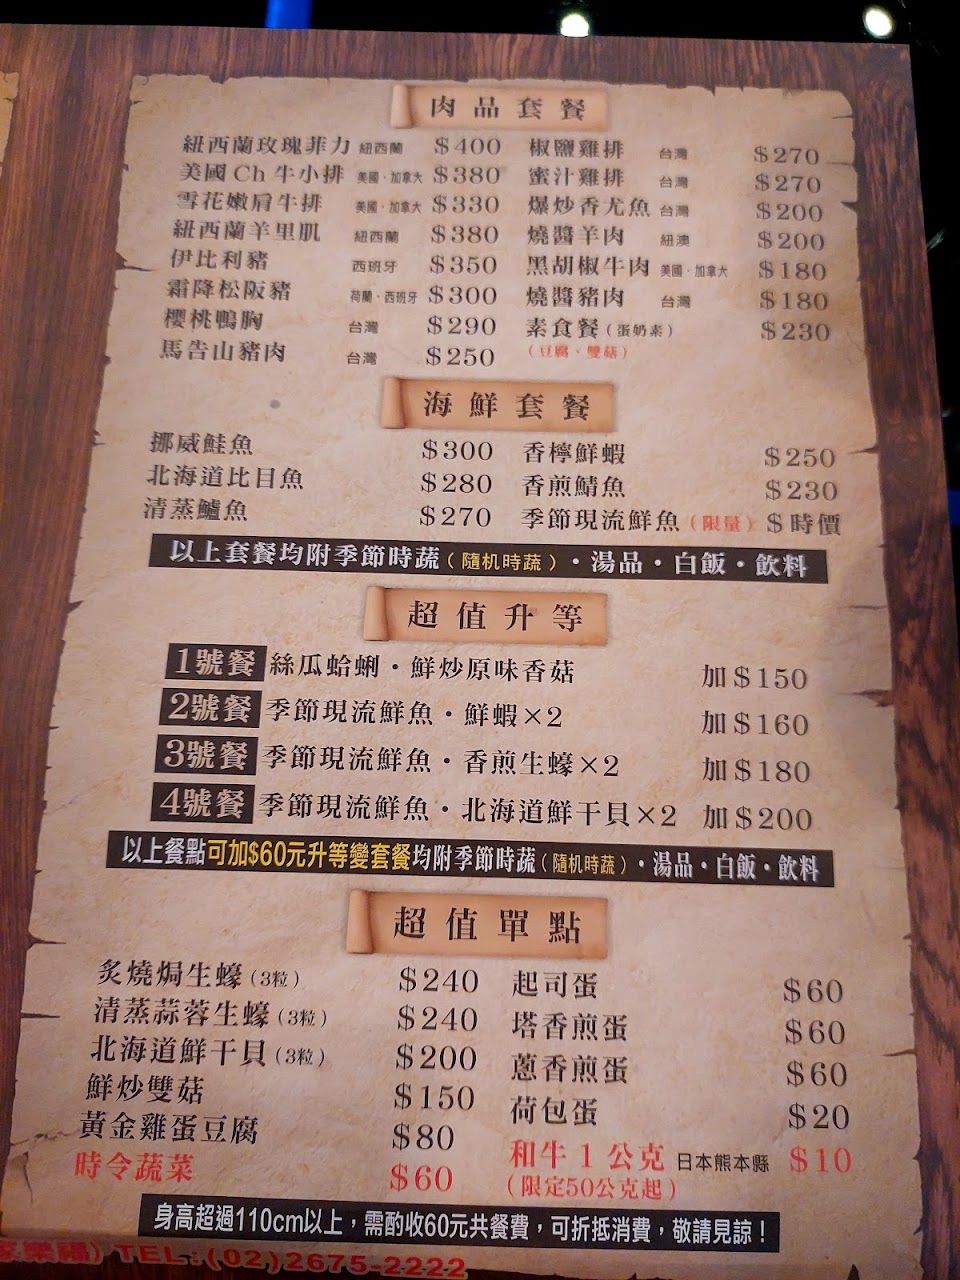 肉品套餐
紐西蘭玫瑰菲力 紐西蘭 $400
美國Ch牛小排 美國・加拿大 $380
雪花嫩肩牛排 美國・加拿大 $330
紐西蘭羊里肌 紐西蘭 $380
伊比利豬 西班牙 $350
霜降松阪豬 荷蘭・西班牙 $300
櫻桃鴨胸 台灣 $290
馬告山豬肉 台灣 $250
椒鹽雞排 台灣 $270
蜜汁雞排 台灣 $270
爆炒香尤魚 台灣 $200
燒醬羊肉 紐澳 $200
黑胡椒牛肉 美國・加拿大 $180
燒醬豬肉 台灣 $180
素食餐(蛋奶素) $230
(豆腐、雙菇)
海鮮套餐
挪威鮭魚 $300
北海道比目魚 $280
清蒸鱸魚 $270
香檸鮮蝦 $250
香煎鯖魚 $230
季節現流鮮魚(限量) $時價
以上套餐均附季節時蔬(隨机時蔬)・湯品・白飯・飲料
超值升等
1號餐 絲瓜蛤蜊・鮮炒原味香菇 加$150
2號餐 季節現流鮮魚・鮮蝦×2 加$160
3號餐 季節現流鮮魚・香煎生蠔×2 加$180
4號餐 季節現流鮮魚・北海道鮮干貝×2 加$200
以上餐點可加$60元升等變套餐均附季節時蔬(隨机時蔬)・湯品・白飯・飲料
超值單點
炙燒焗生蠔(3粒) $240
清蒸蒜蓉生蠔(3粒) $240
北海道鮮干貝(3粒) $200
鮮炒雙菇 $150
黃金雞蛋豆腐 $80
時令蔬菜 $60
起司蛋 $60
塔香煎蛋 $60
蔥香煎蛋 $60
荷包蛋 $20
和牛1公克 日本熊本縣 $10
(限定50公克起)
身高超過110cm以上，需酌收60元共餐費，可折抵消費，敬請見諒！
家樂福) TEL:(02)2675-2222